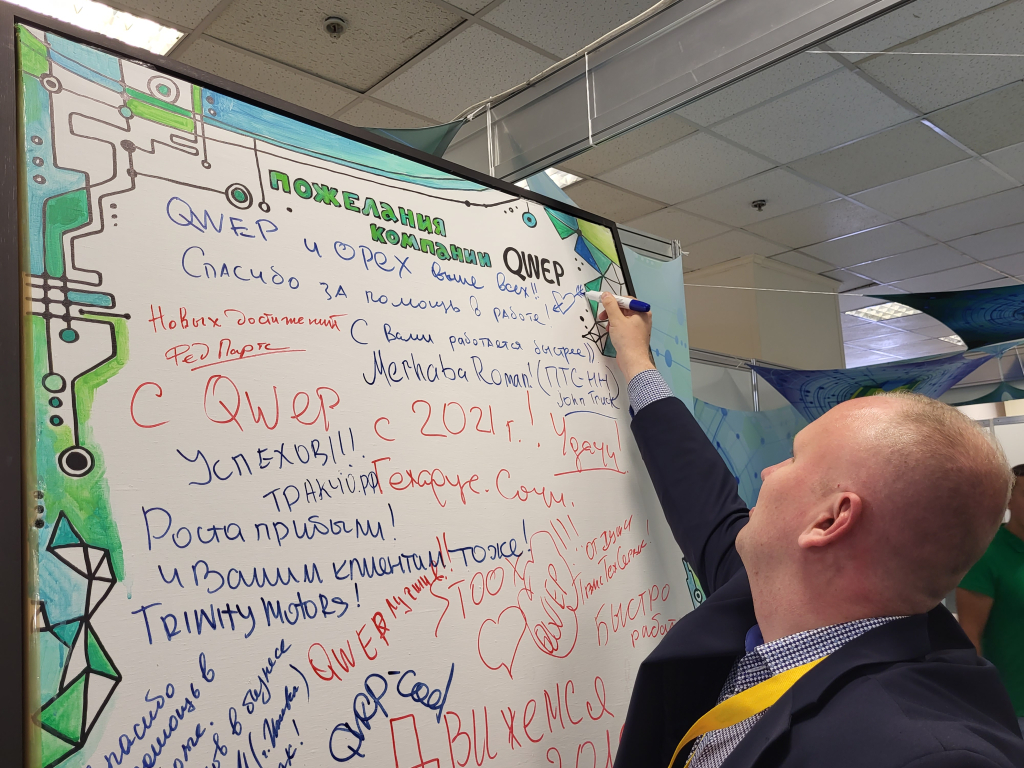 ПОЖЕЛАНИЯ
КОМПАНИИ QWEP
QWEP и ОРЕХ выше всех!!
Спасибо за помощь в работе!
Новых достижений
Фед Партс
С Вами работается быстрее))
Merhaba Roman! (ПТС НН
John Truck
С QWEP
с 2021 г.! Удачи!
УСПЕХОВ!!!
ТРАКЧО.РФ
Техарус. Сочи.
Роста прибыли!
и Вашим клиентам тоже!
TRINITY MOTORS!
QWEP лучший!!
STOO
QWEP
от души
ТрансТехСервис!
Быстро
работ
QWEP-cool
Спасибо
помощь в
в бизнесе
ДВИЖЕМСЯ